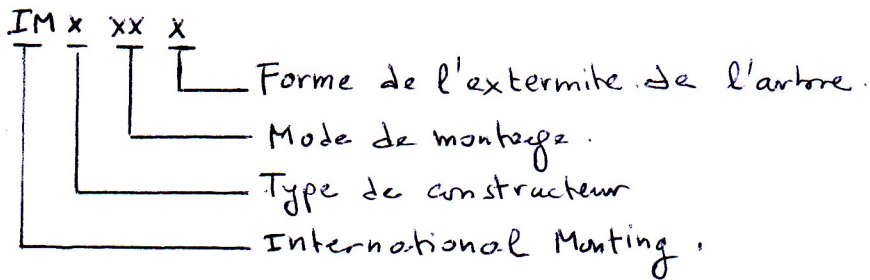 IM x xx x
Forme de l'extermite de l'arbre.
Mode de montage.
Type de constructeur
International Munting.